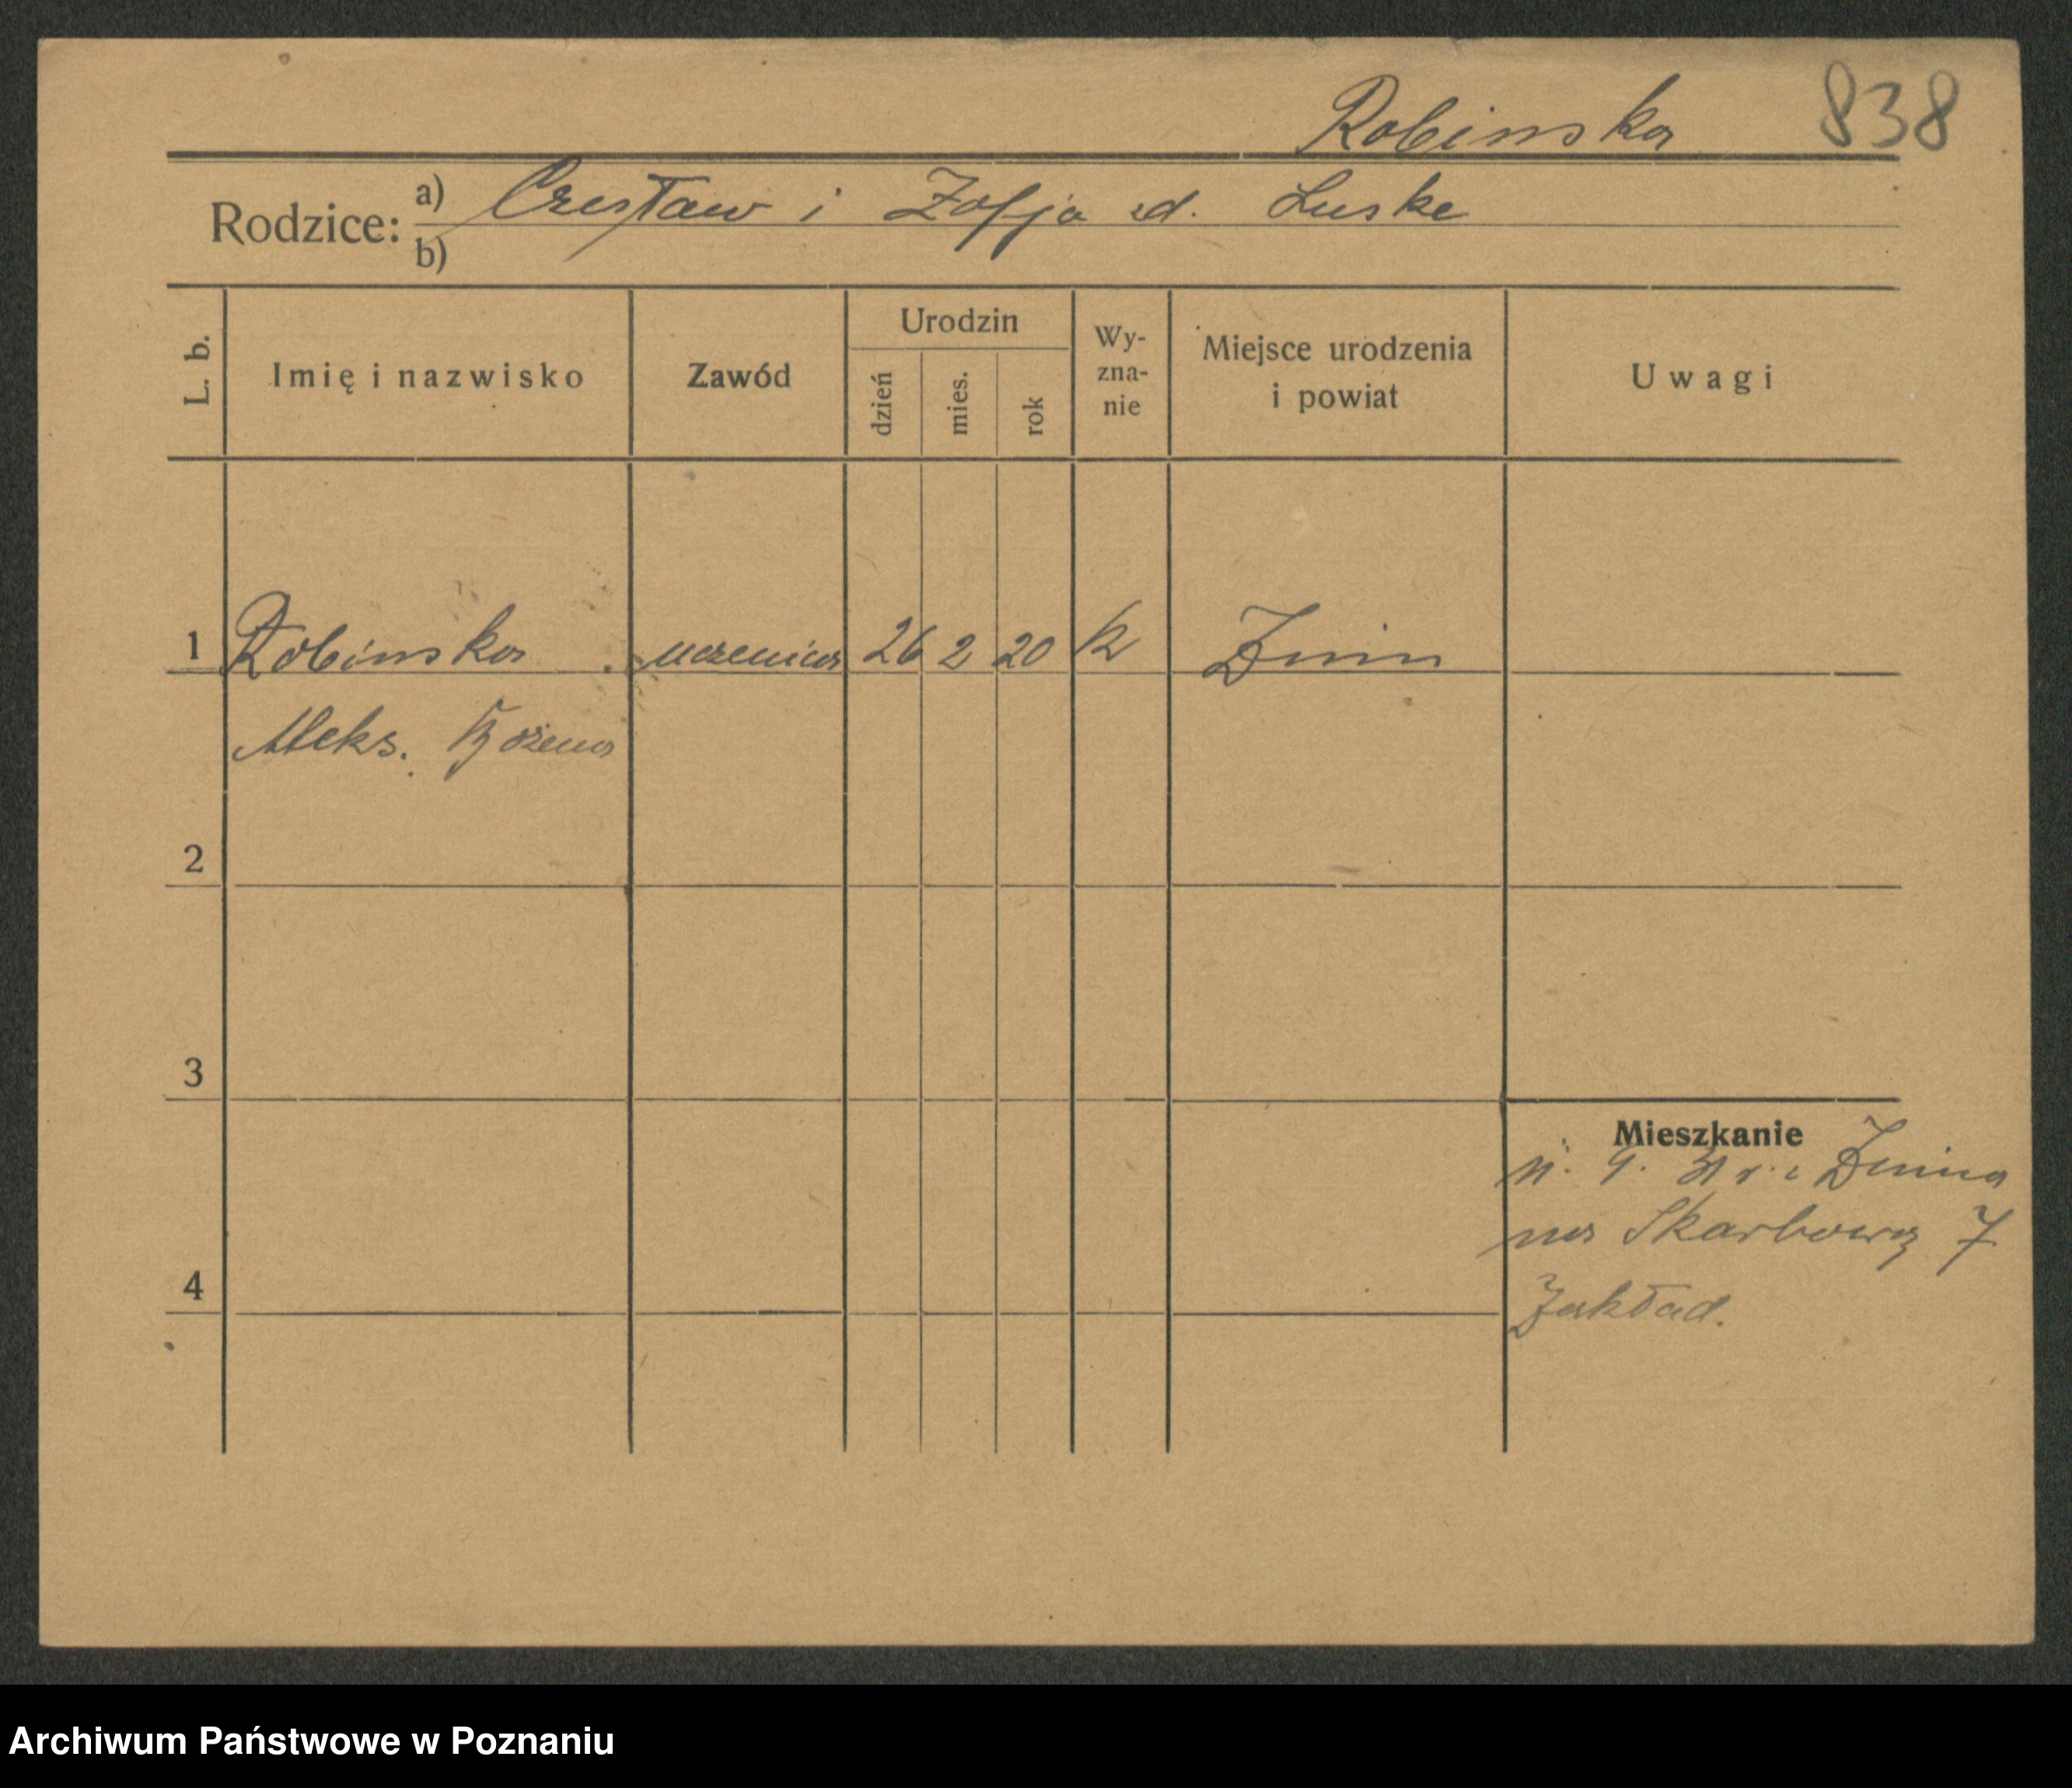 Robinska 838
Rodzice: a) Czesław i Zofja zd. Luske
b)
L. b. Imię i nazwisko Zawód Urodzin dzień mies. rok Wy-zna-nie Miejsce urodzenia i powiat Uwagi
1 Robinska uczenica 26 2 20 k Żnin
Aleks. Bożena
2
3
Mieszkanie
Żnina
na Skarbową 7
4
Zakład.
Archiwum Państwowe w Poznaniu